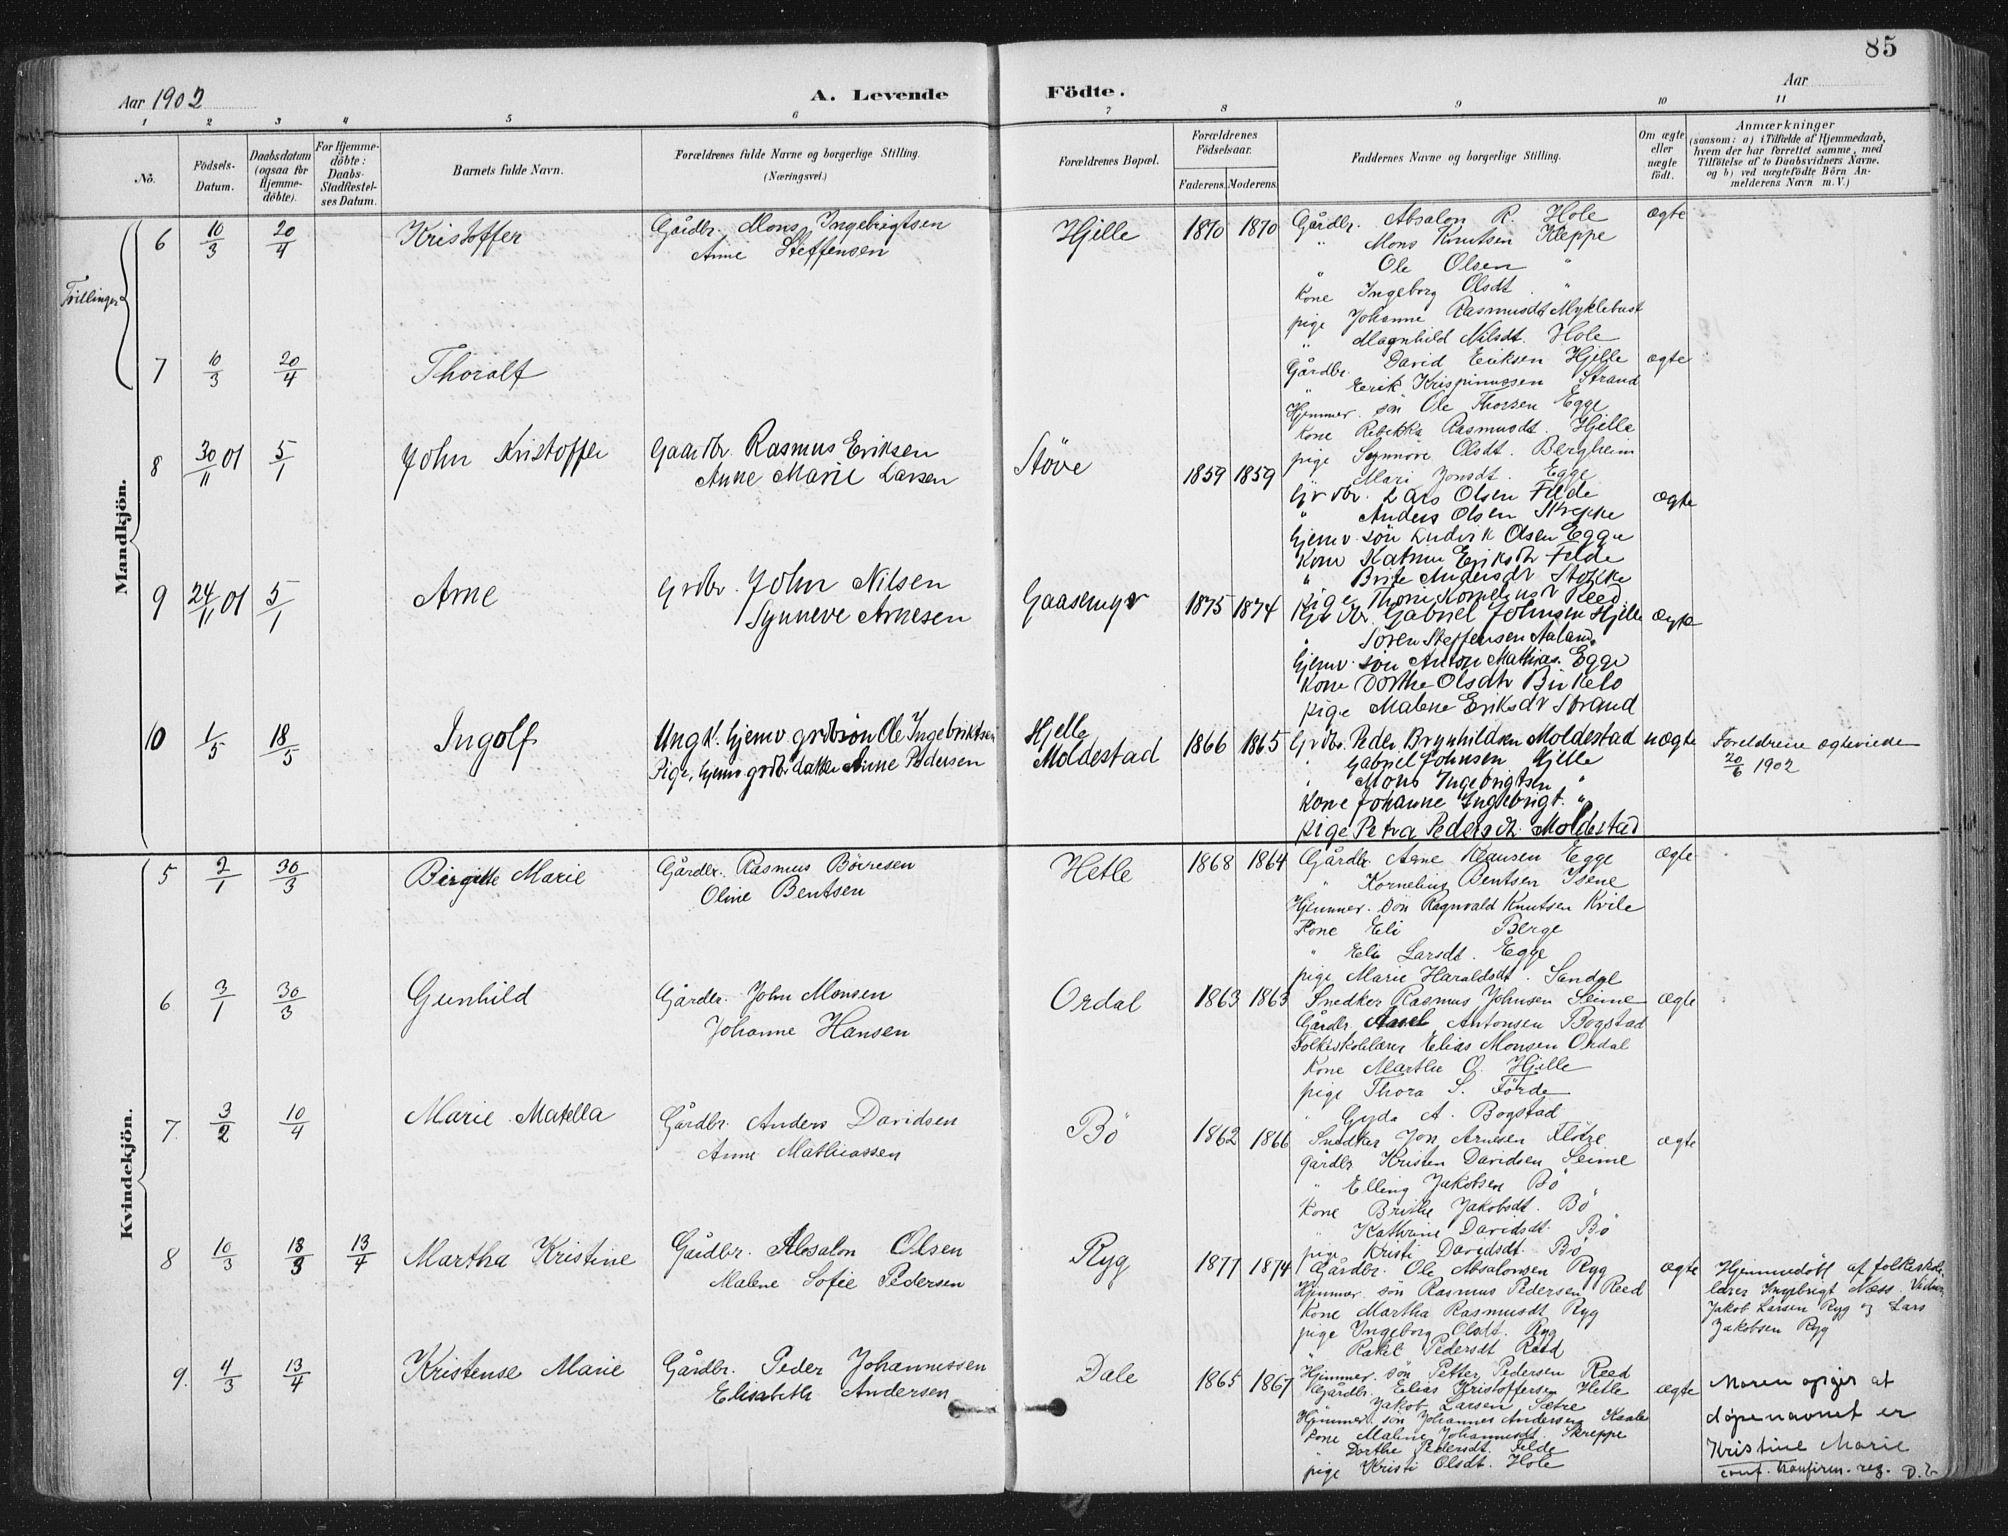 85
Aar 1902 A. Levende Födte. Aar
1 2 3 4 5 6 7 8 9 10 11
No. Födsels-Datum. Daabsdatum (ogsaa for Hjemmedöbte). For Hjemmedöbte: Daabs-Stadfæstelses Datum. Barnets fulde Navn. Forældrenes fulde Navne og borgerlige Stilling. (Næringsvei.) Forældrenes Bopæl. Forældrenes Födselsaar. Faderens. Moderens. Faddernes Navne og borgerlige Stilling. Om ægte eller uægte födt. Anmærkninger (saasom: a) i Tilfælde af Hjemmedaab, hvem der har forrettet samme, med Tilföielse af to Daabsvidners Navne. og b) ved uægtefödte Börn Anmelderens Navn m. V.)
Mandkjön.
Tvillinger
6 10/3 20/4 Kristoffer Gårdbr. Mons Ingebrigtsen Hjelle 1870 1870 Gårdbr. Absalon R. Hole ægte
Anne Steffensen " Mons Knutsen Kleppe
Ole Olsen "
Kone Ingeborg Olsdt. "
pige Johanne Rasmusdt Myklebust
" Magnhild Nilsdt. Hole
7 10/3 20/4 Thoralf Gårdbr. David Eriksen Hjelle ægte
" Eerik Krispinussen Strand
Hjemmev. sön Ole Thorsen Egge
Kone Rebekka Rasmusdt. Hjelle
pige Synnöve Olsdt. Bergheim
Mari Jonsdt. Egge
8 30/11 01 5/1 John Kristoffer Gaardbr. Rasmus Eriksen Stöve 1859 1859 Grdbr. Lars Olsen Felde ægte
Anne Marie Larsen " Anders Olsen Skreppe
hjemv. sön Ludvik Olsen Egge
Kone Katrine Eriksdtr Felde
" Brite Andersdtr Stokke
pige Thorine Kornelius dt Reed
9 24/11 01 5/1 Arne Grdbr. John Nilsen Gaasemyr 1875 1874 Grdbr. Gabriel Johnsen Hjelle ægte
Synneve Arnesen " Sören Steffensen Aaland
hjemv. sön Anton Mathias. Egge
Kone Dorthe Olsdtr Birkelo
pige Malene Eriksdtr Strand
10 1/5 18/5 Ingolf Ungk. hjemv grdbrsön Ole Ingebriktsen Hjelle 1866 1865 Grdbr. Peder Brynhildsen Moldestad uægte Foreldrene ægteviede
Pige, hjemv grdbr datter Anne Pedersen Moldestad " Gabriel Johnsen Hjelle 20/6 1902
" Mons Ingebrigtsen "
Kone Johanne Ingebrigt. "
pige Petra Pedersdt. Moldestad
Kvindekjön.
5 2/1 30/3 Birgitte Marie Gårdbr. Rasmus Börresen Hetle 1868 1864 Gårdbr. Arne Klausen Egge ægte
Oline Bentsen " Kornelius Bentsen Isene
Hjemmev. sön Ragnvald Knutsen Kvile
Kone Eli Berge
" Eli Larsdt. Egge
pige Marie Haraldsdt. Sandal
6 3/1 30/3 Gunhild Gårdbr. John Monsen Ordal 1863 1863 Snedker Rasmus Johnsen Seime ægte
Johanne Hansen Gårdbr. Antonsen Bogstad
Folkeskolelærer Elias Monsen Ordal
Kone Marthe O. Hjelle
pige Thora S. Förde
" Gyda A. Bogstad
7. 3/2 10/4 Marie Matella Gårdbr. Anders Davidsen Bö 1862 1866 Snedker Jon Arnesen Flötre ægte
Anne Mathiassen gårdbr. Kristen Davidsen Seime
" Elling Jakobsen Bö
Kone Brithe Jakobsdt. Bö
" Kathrine Davidsdt. Bö
pige Kristi Davidsdt. Bö
8 10/3 18/3 13/4 Martha Kristine Gårdbr. Absalon Olsen Ryg 1877 1874 Gårdbr. Ole Absalonsen Ryg ægte Hjemmedöbt af folkeskole
Malene Sofie Pedersen Hjemmev. sön Rasmus Pedersen Reed lærer Ingebrigt Næss. Vidner
Kone Martha Rasmusdt Ryg Jakob Larsen Ryg og Lars
pige Ingeborg Olsdt. Ryg Jakobsen Ryg
" Rakel Pedersdt Reed
Hjemmev. sön Petter Pedersen Reed
9. 4/3 13/4 Kristense Marie Gårdbr. Peder Johannessen Dale 1865 1867 Gårdbr. Elias Kristoffersen Hetle ægte Moren opgir at
Elisabeth Andersen " Jakob Larsen Sætre döpenavnet er
Hjemmev. sön Johannes Andersen Kristine Marie
Kone Maline Johannesdt. Skreppe conf. konfirm. reg.
Dorthe Pedersdt. Felde
pige Kristi Olsdt. Hole